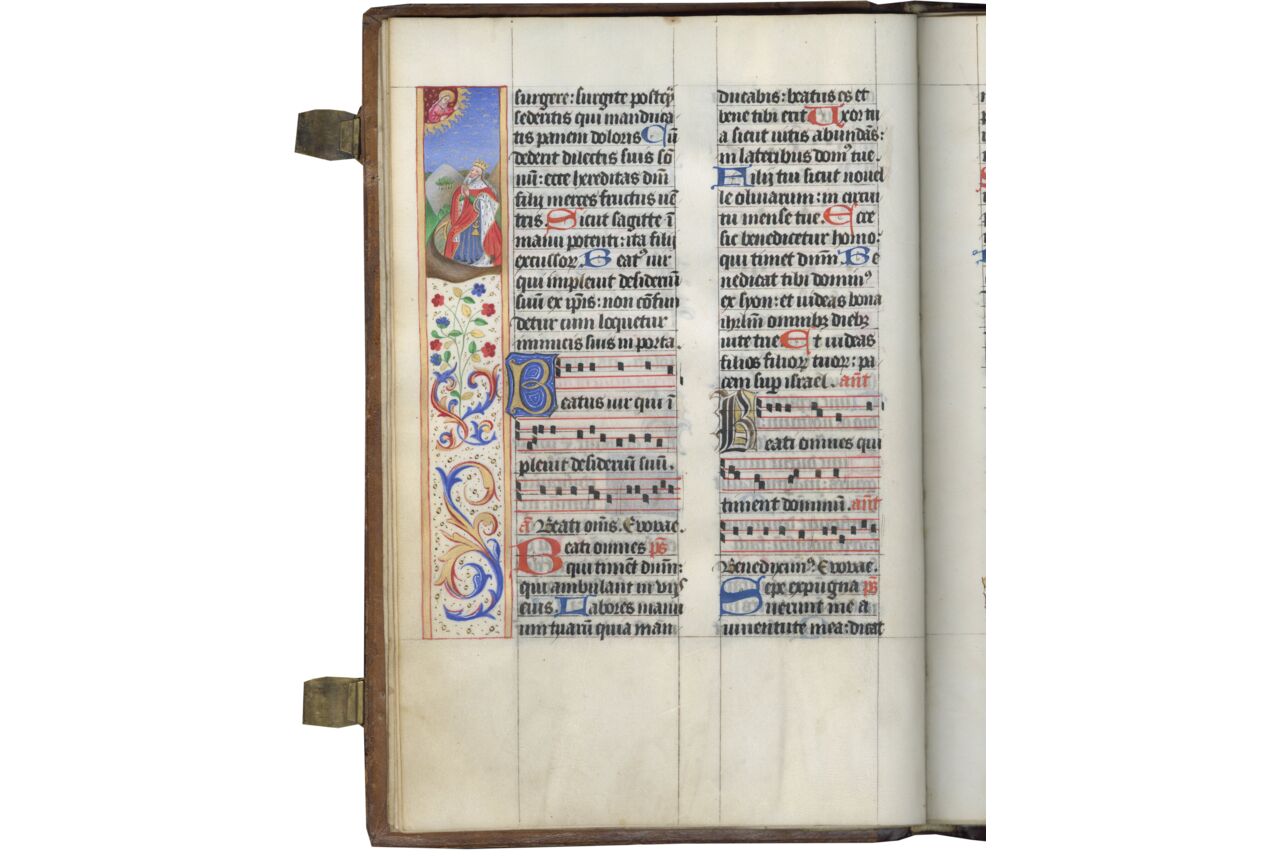 surgere: surgite postq̃
sedentis qui manduca
tis panem doloris Cũ
dederit dilectis suis sõ
nũ: ecce hereditas dñi
filij merces fructus uẽ
tris Sicut sagitte ĩ
manu potenti: ita filij
excussoꝝ Beatꝰ uir
qui impleuit desideriũ
suũ ex ip̃is: non cõfun
detur cum loquetur
inimicis suis in porta.
Beatus uir qui ĩ
pleuit desideriũ suũ.
a͞ Beati om̃s. Evovae.
Beati omnes p͞s
qui timẽt dñm:
qui ambulant in vijs
eius. Labores manu
um tuarũ quia man
ducabis: beatus es et
bene tibi erit Uxor tu
a sicut uitis abundãs:
in lateribus domꝰ tue.
Filij tui sicut nouel
le oliuarum: in circui
tu mense tue. Ecce
sic benedicetur homo:
qui timet dñm. Be
nedicat tibi dominꝰ
ex syon: et uideas bona
ihrlm̃ omnibꝫ diebꝫ
uite tue Et uideas
filios filioꝝ tuoꝝ: pa
cem sup israel. an͞t
Beati omnes qui
timent dominũ. an͞t
Benediximꝰ. Evovae.
Sepe expugna p͞s
uerunt me a
iuuentute mea: dicat